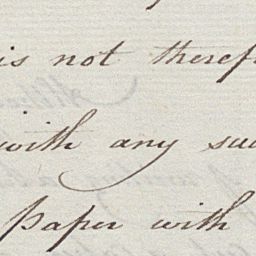 is not theref
with any suc
paper with